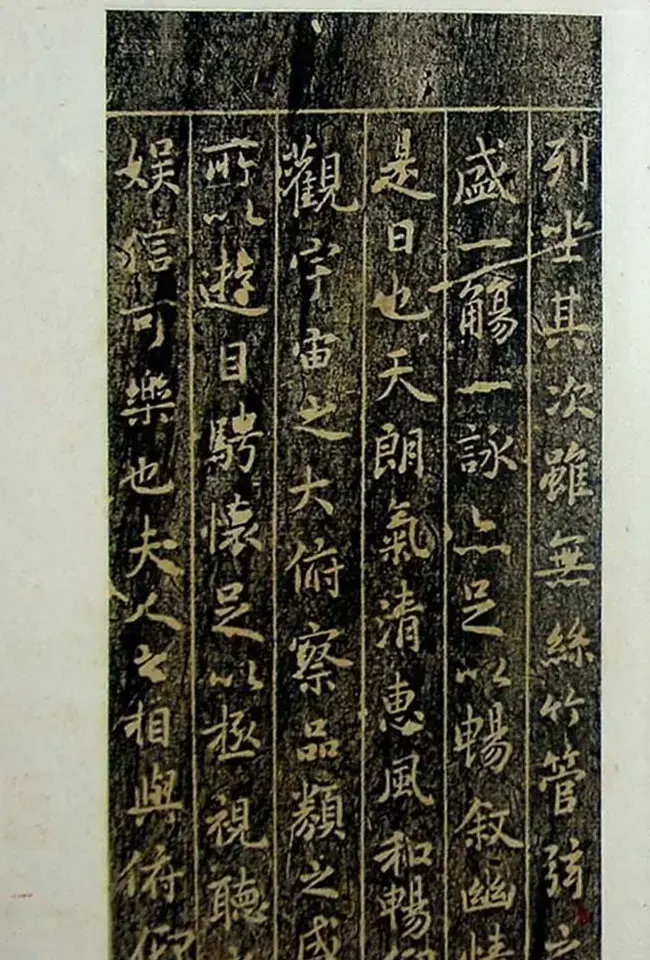 列坐其次雖無絲竹管弦之
盛一觴一詠亦足以暢叙幽情
是日也天朗氣清惠風和暢仰
觀宇宙之大俯察品類之盛
所以遊目騁懷足以極視聽之
娱信可樂也夫人之相與俯仰